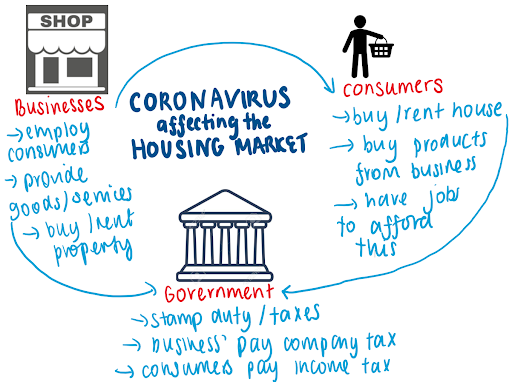 SHOP
Businesses
→ employ
consumers
→ provide
goods/services
→ buy/rent
property
CORONAVIRUS
affecting the
HOUSING MARKET
consumers
→ buy/rent house
→ buy products
from business
→ have job
to afford
this
Government
→ stamp duty/taxes
→ business' pay company tax
→ consumers pay income tax